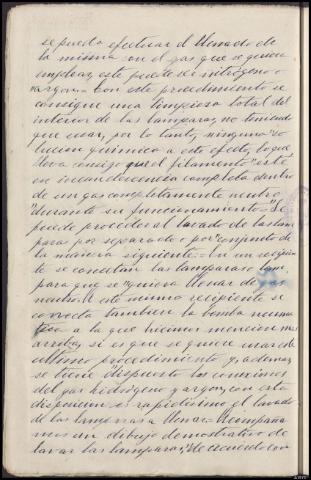 se pueda efectuar el llenado de
la misma con el gas que se quiera
emplear, este puede ser nitrógeno o
argon. Con este procedimiento se
consigue una limpieza total del
interior de las lamparas, no teniendo
que usar, por lo tanto, ninguna so
lucion quimica a este efecto, lo que
lleva consigo que el filamento esté
en incandescencia completa dentro
de un gas completamente neutro
durante su funcionamiento = Se
puede proceder al lavado de las lam
paras por separado o por conjunto de
la manera siguiente: En un recipien
te se conectan las lamparas o lam
para que se quiera llenar de gas
neutro. A este mismo recipiente se
conecta tambien la bomba neuma
tica a la que hicimos mencion mas
arriba, si es que se quiere usar el
ultimo procedimiento y, ademas,
se tiene dispuesto las conexiones
del gas hidrógeno y argon, con esta
disposicion es rapidisimo el lavado
de las lamparas a llenar. Acompaña
mos un dibujo demostrativo de
lavar las lamparas, de acuerdo con